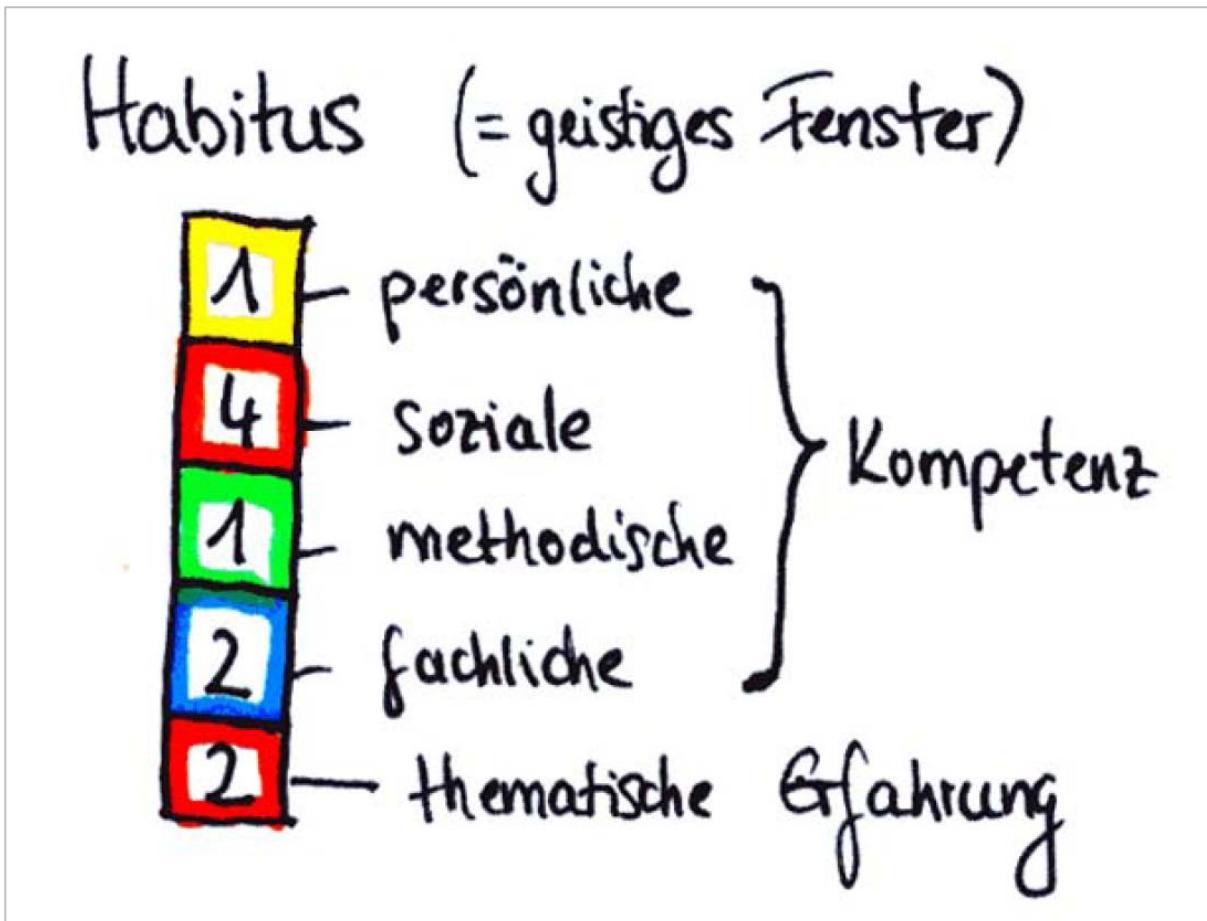 Habitus (= geistiges Fenster)
1 persönliche
4 soziale
1 methodische
Kompetenz
2 fachliche
2 thematische Erfahrung